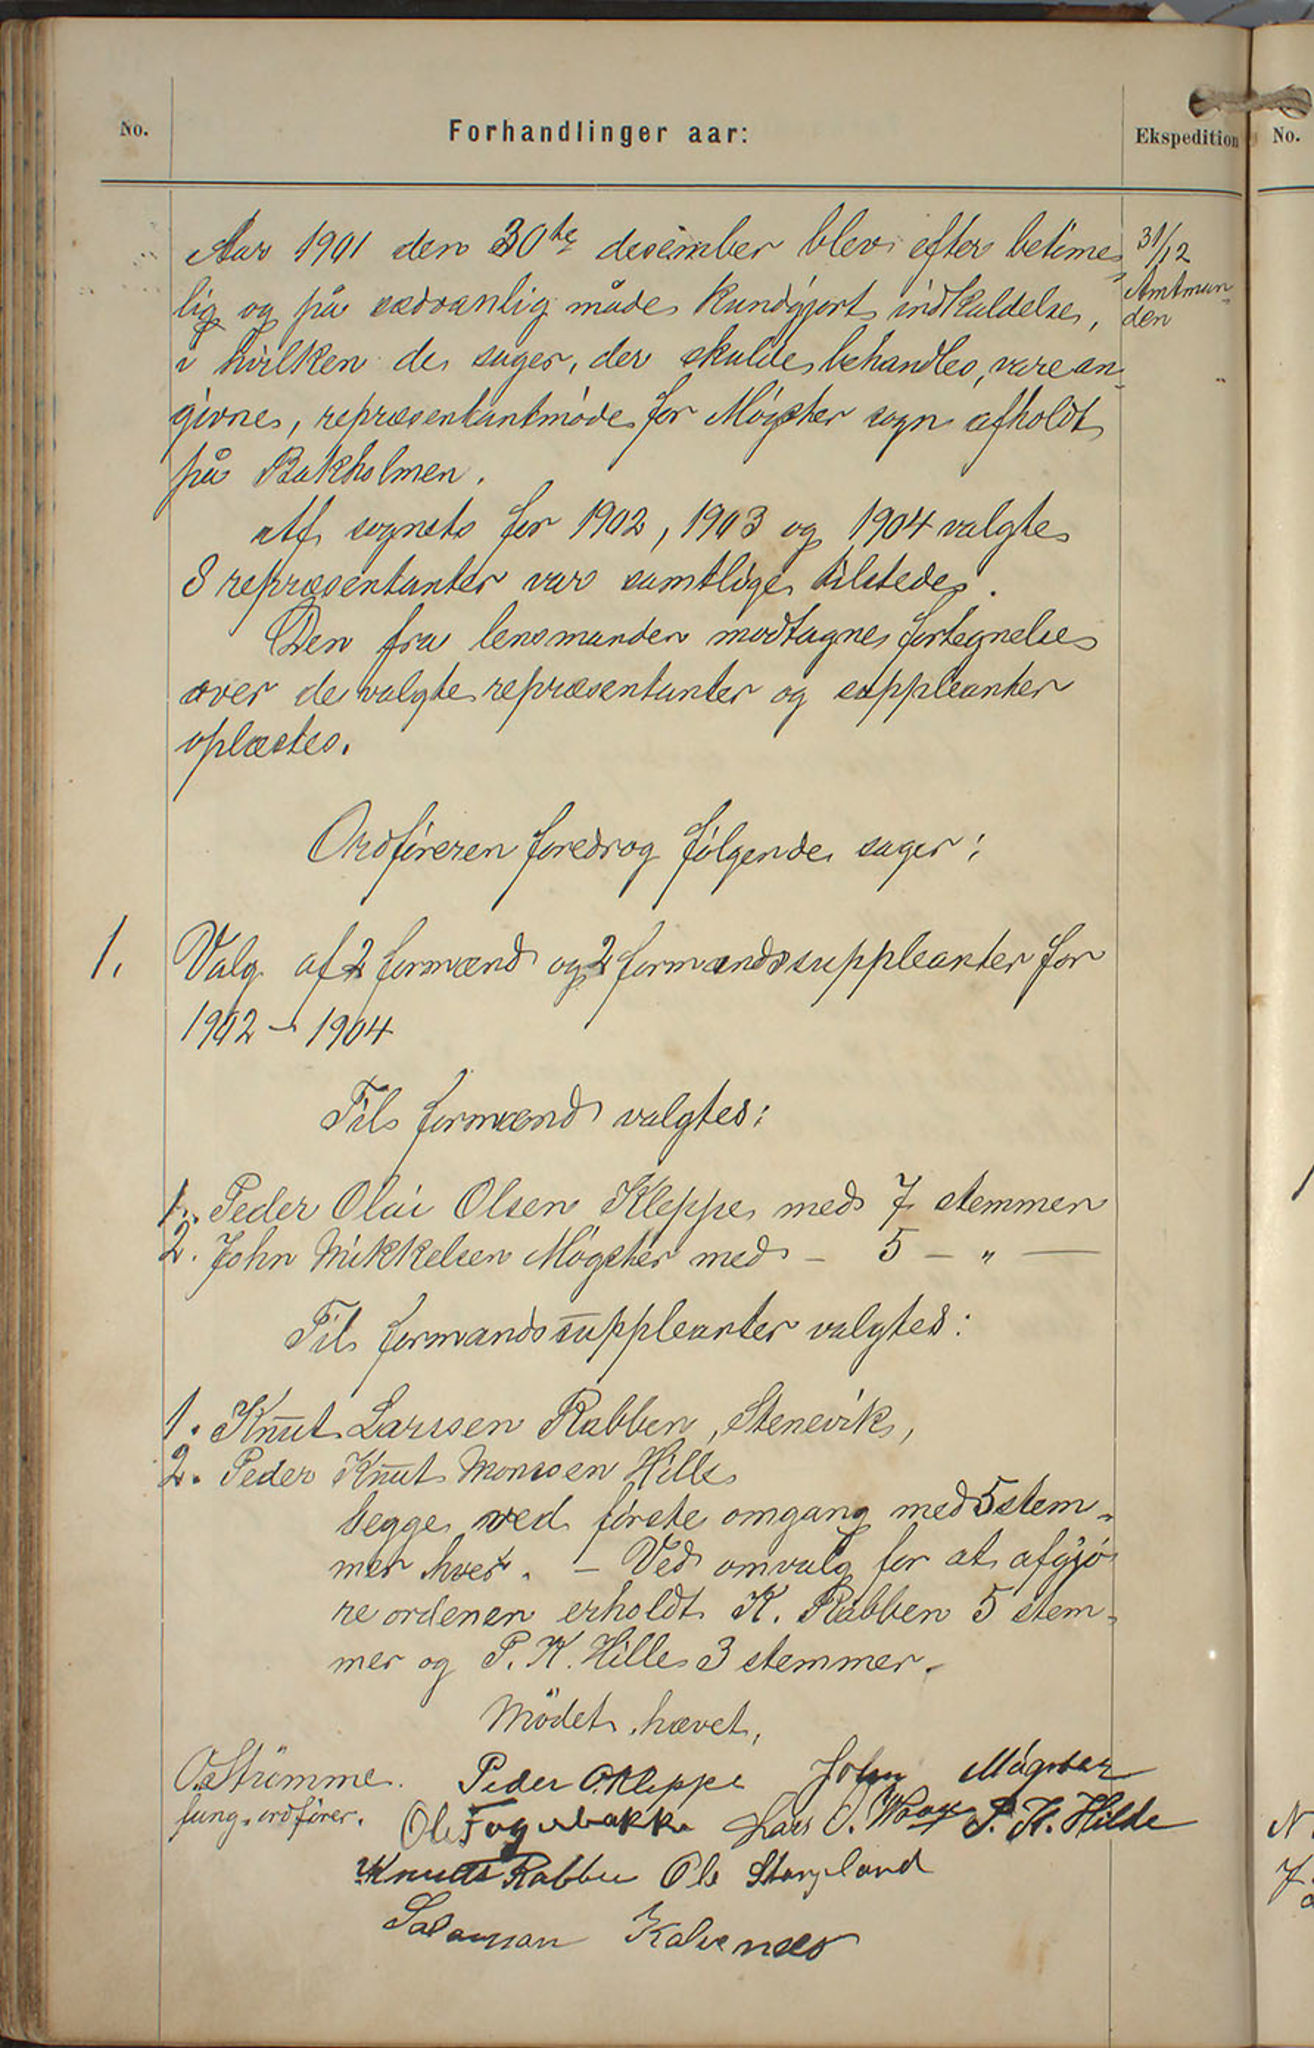 No.
Forhandlinger aar:
Ekspedition
No.
Aar 1901 den 30te desember blev efter betime-
lig og på sædvanlig måde kundgjort indkaldelse,
i hvilken de sager, der skulde behandles, vare an-
givne, repræsentantmøde for Møgster sogn afholdt
på Bakholmen.
31/12
Amtman-
den
Af sognets for 1902, 1903 og 1904 valgte
8 repræsentanter var samtlige tilstede.
Den fra lensmanden modtagne fortegnelse
over de valgte repræsentanter og suppleanter
oplæstes.
Ordføreren foredrog følgende sager:
1. Valg af 2 formænd og 2 formandssuppleanter for
1902 - 1904
Til formænd valgtes:
1. Peder Olai Olsen Kleppe med 7 stemmer
2. John Mikkelsen Møgster med - 5 - " -
Til formandssuppleanter valgtes:
1. Knut Larssen Rabben, Stenevik,
2. Peder Knut Monssen Hille
begge ved første omgang med 5 stem-
mer hver. - Ved omvalg for at afgjø-
re ordenen erholdt K. Rabben 5 stem-
mer og P. K. Hille 3 stemmer.
Mødet hævet.
O. Strömme. Peder O. Kleppe John Mögster
fung. ordfører. Ole Fagerbakke Lars O. P. K. Hilde
Knut Rabben Ole
Salamon Kalvenæs